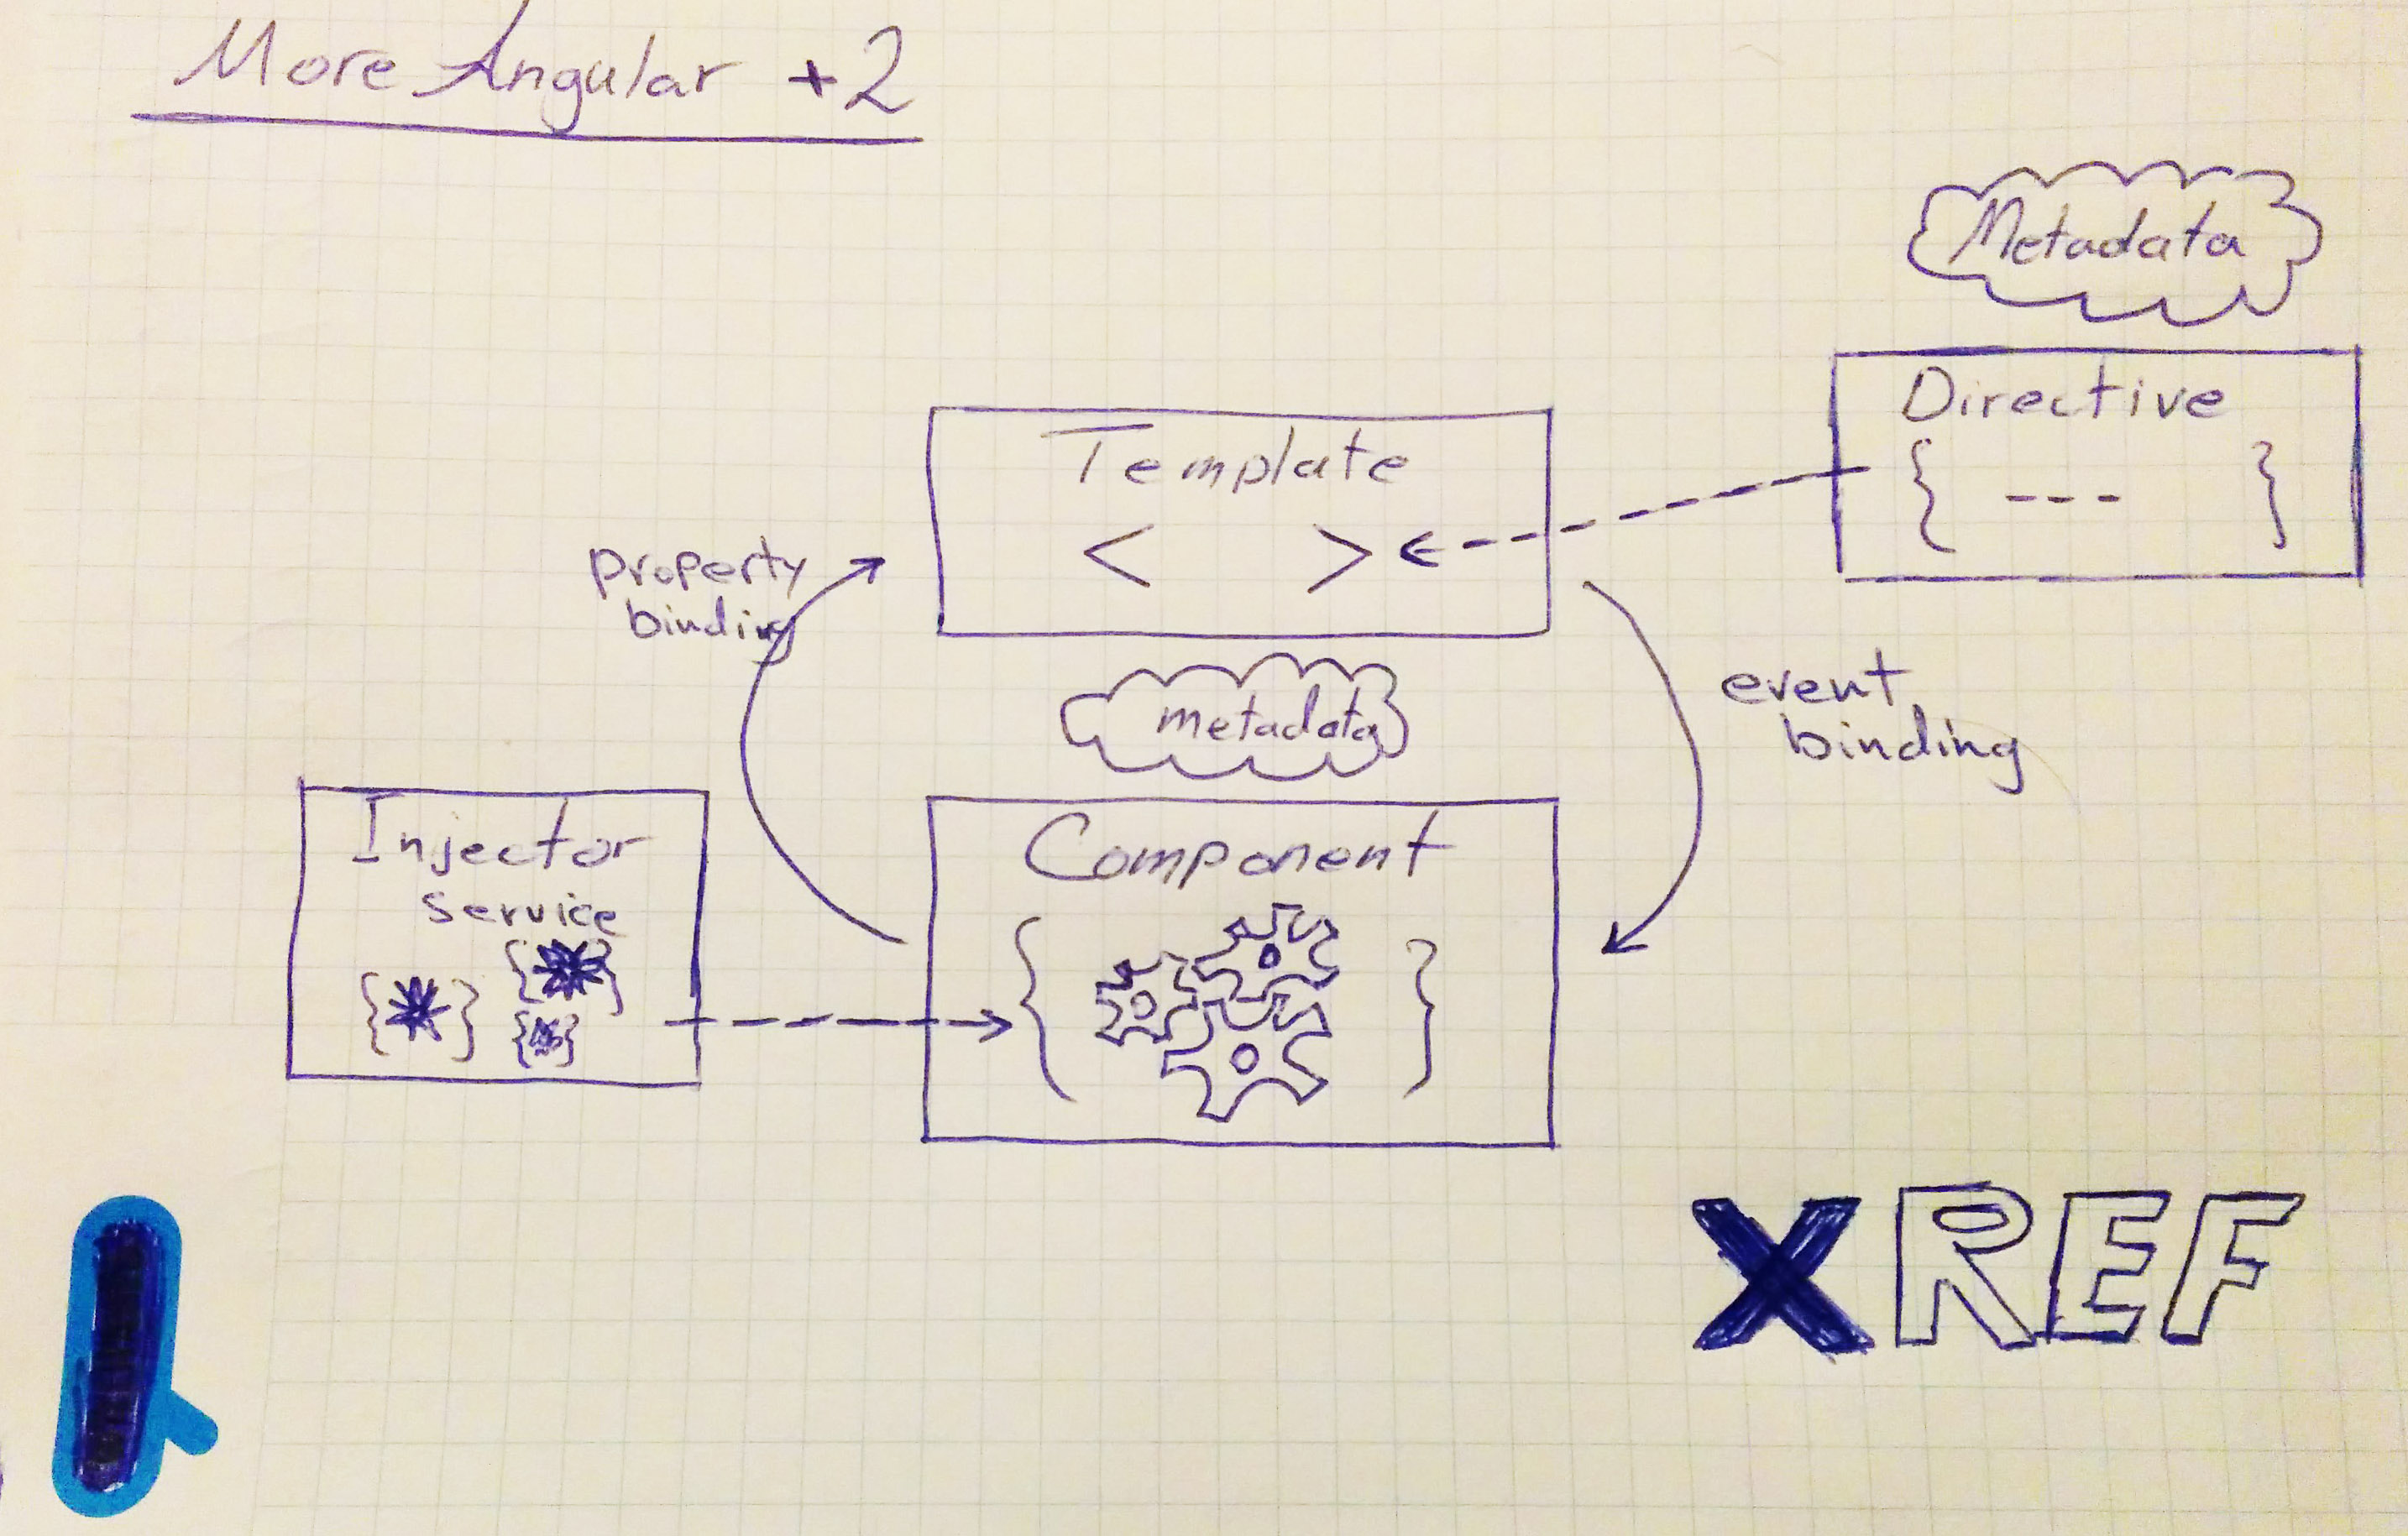 More Angular +2
Metadata
Directive
{ --- }
Template
< >
property
binding
metadata
event
binding
Injector
service
{*} {*}
{*}
Component
{ }
XREF